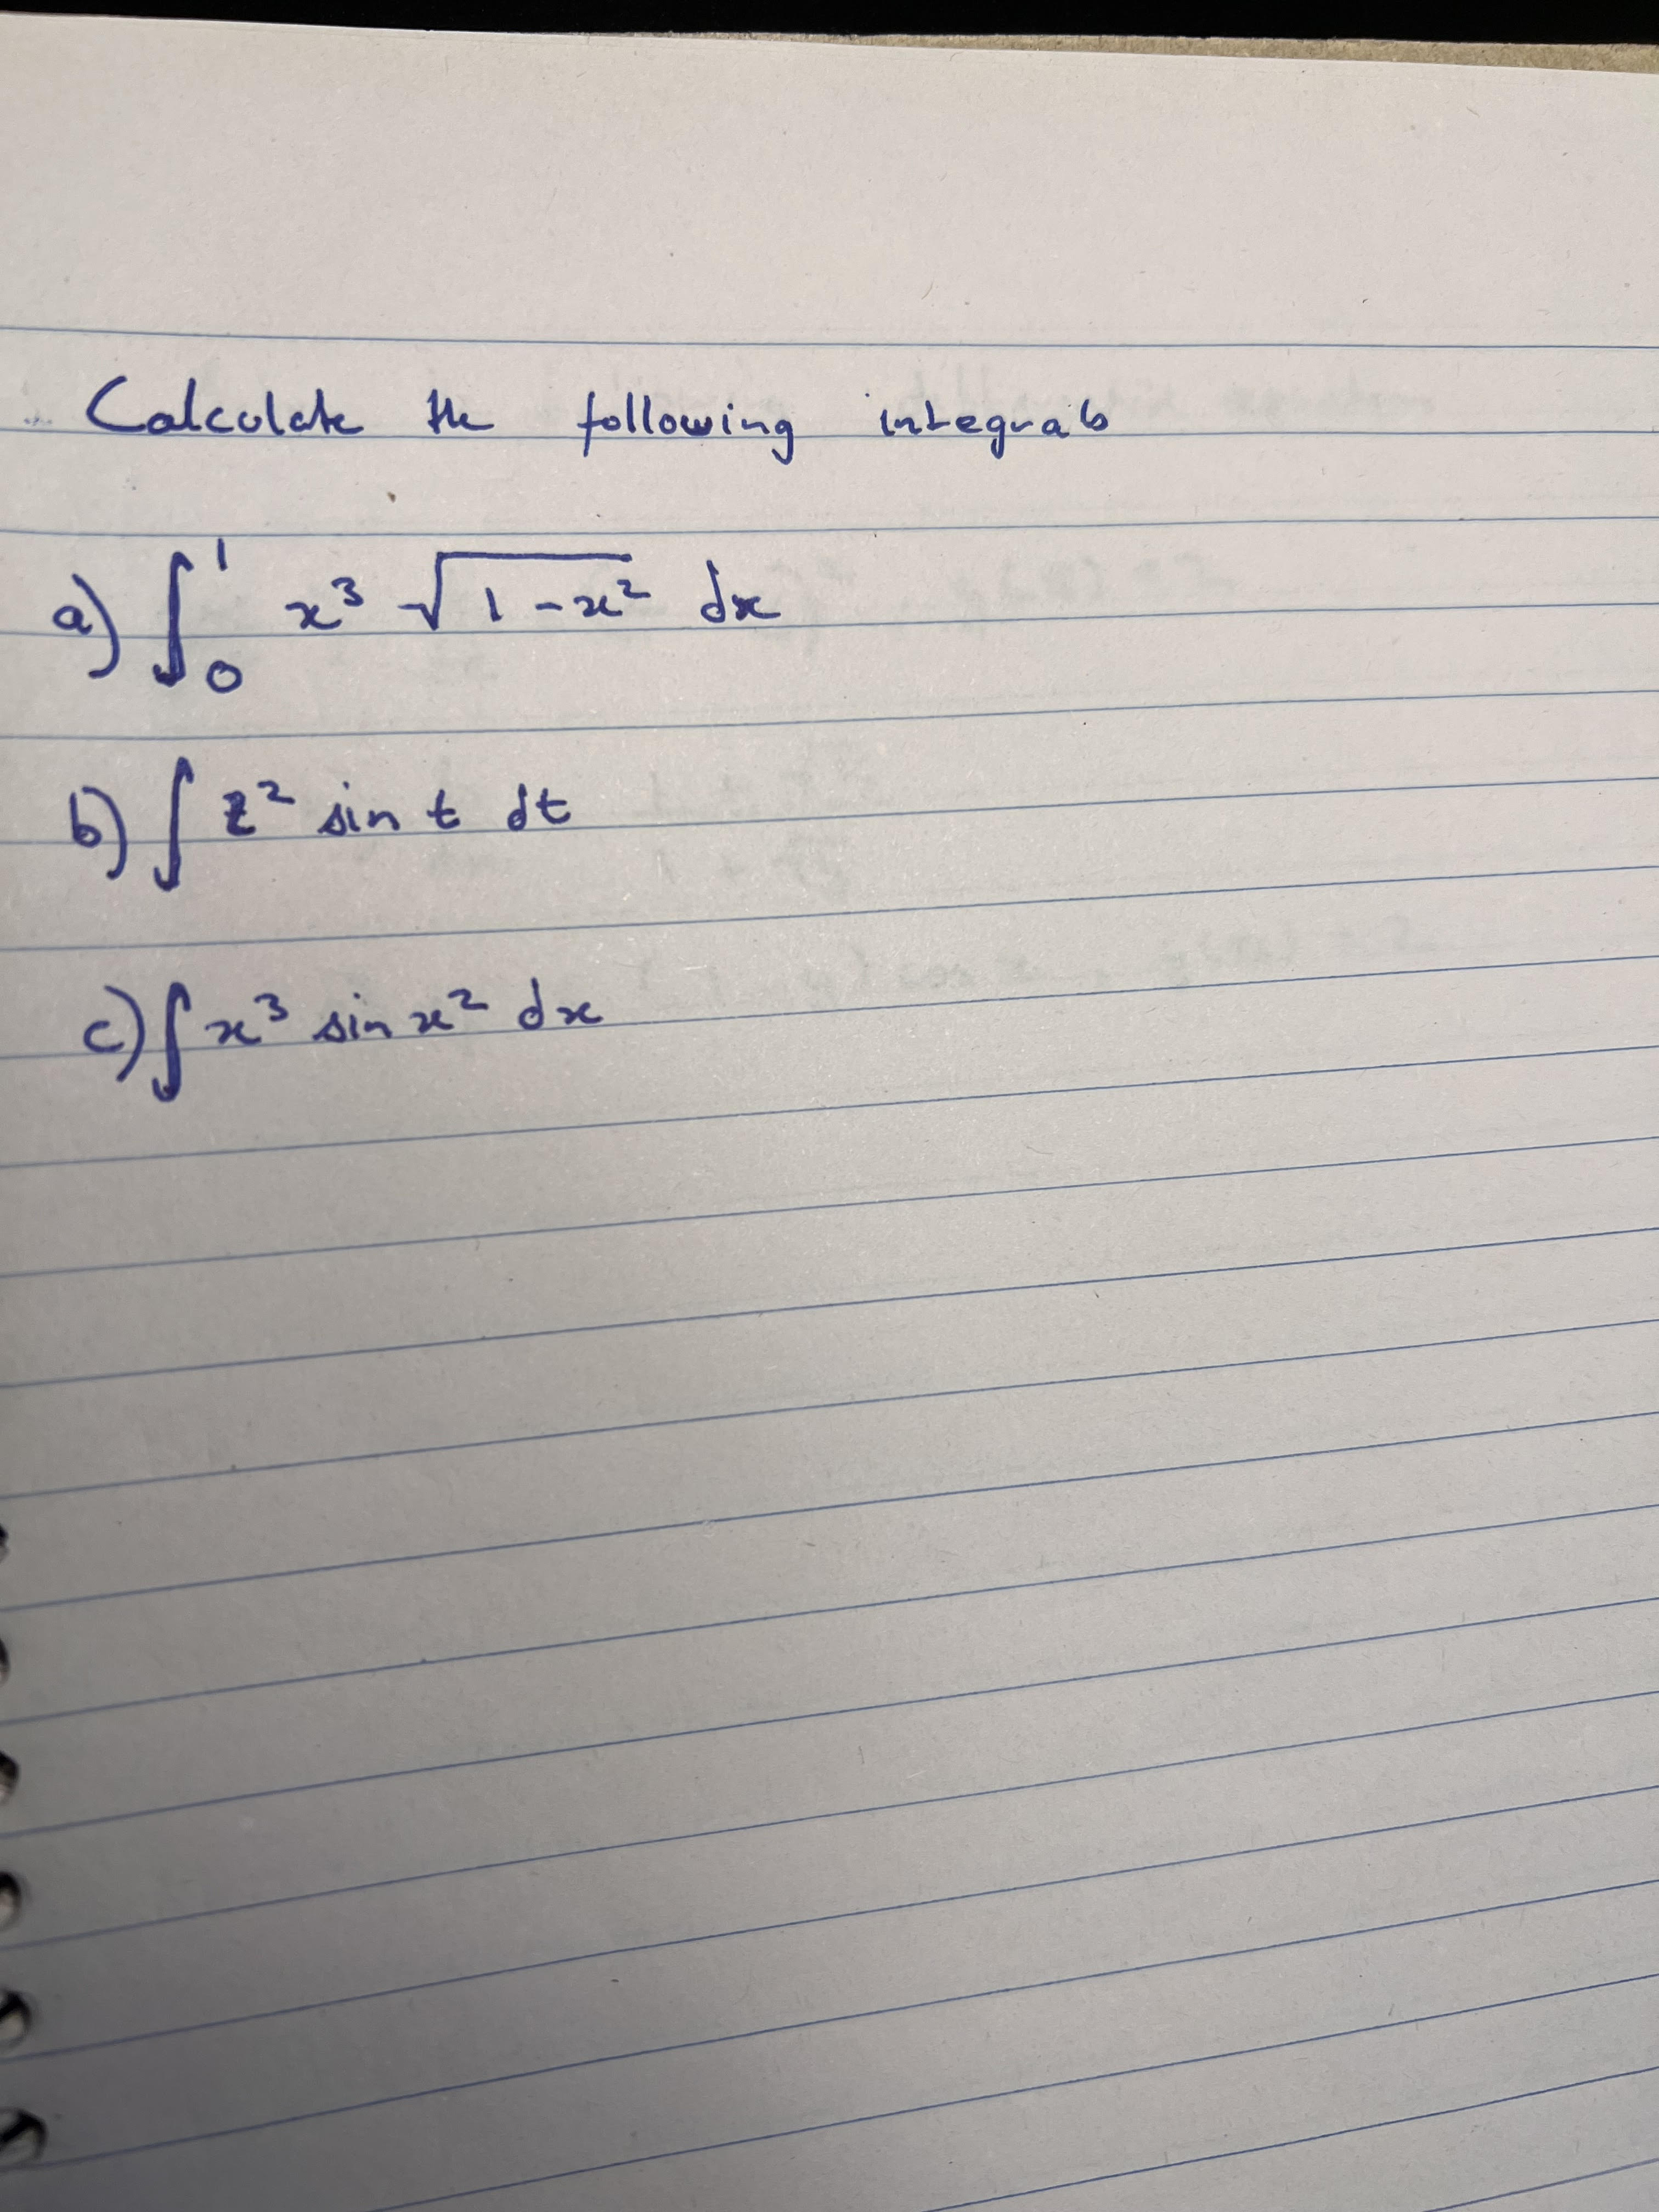 Calculate the following integrals
a) ∫₀¹ x³ √(1-x²) dx
b) ∫ z² sin t dt
c) ∫ x³ sin x² dx